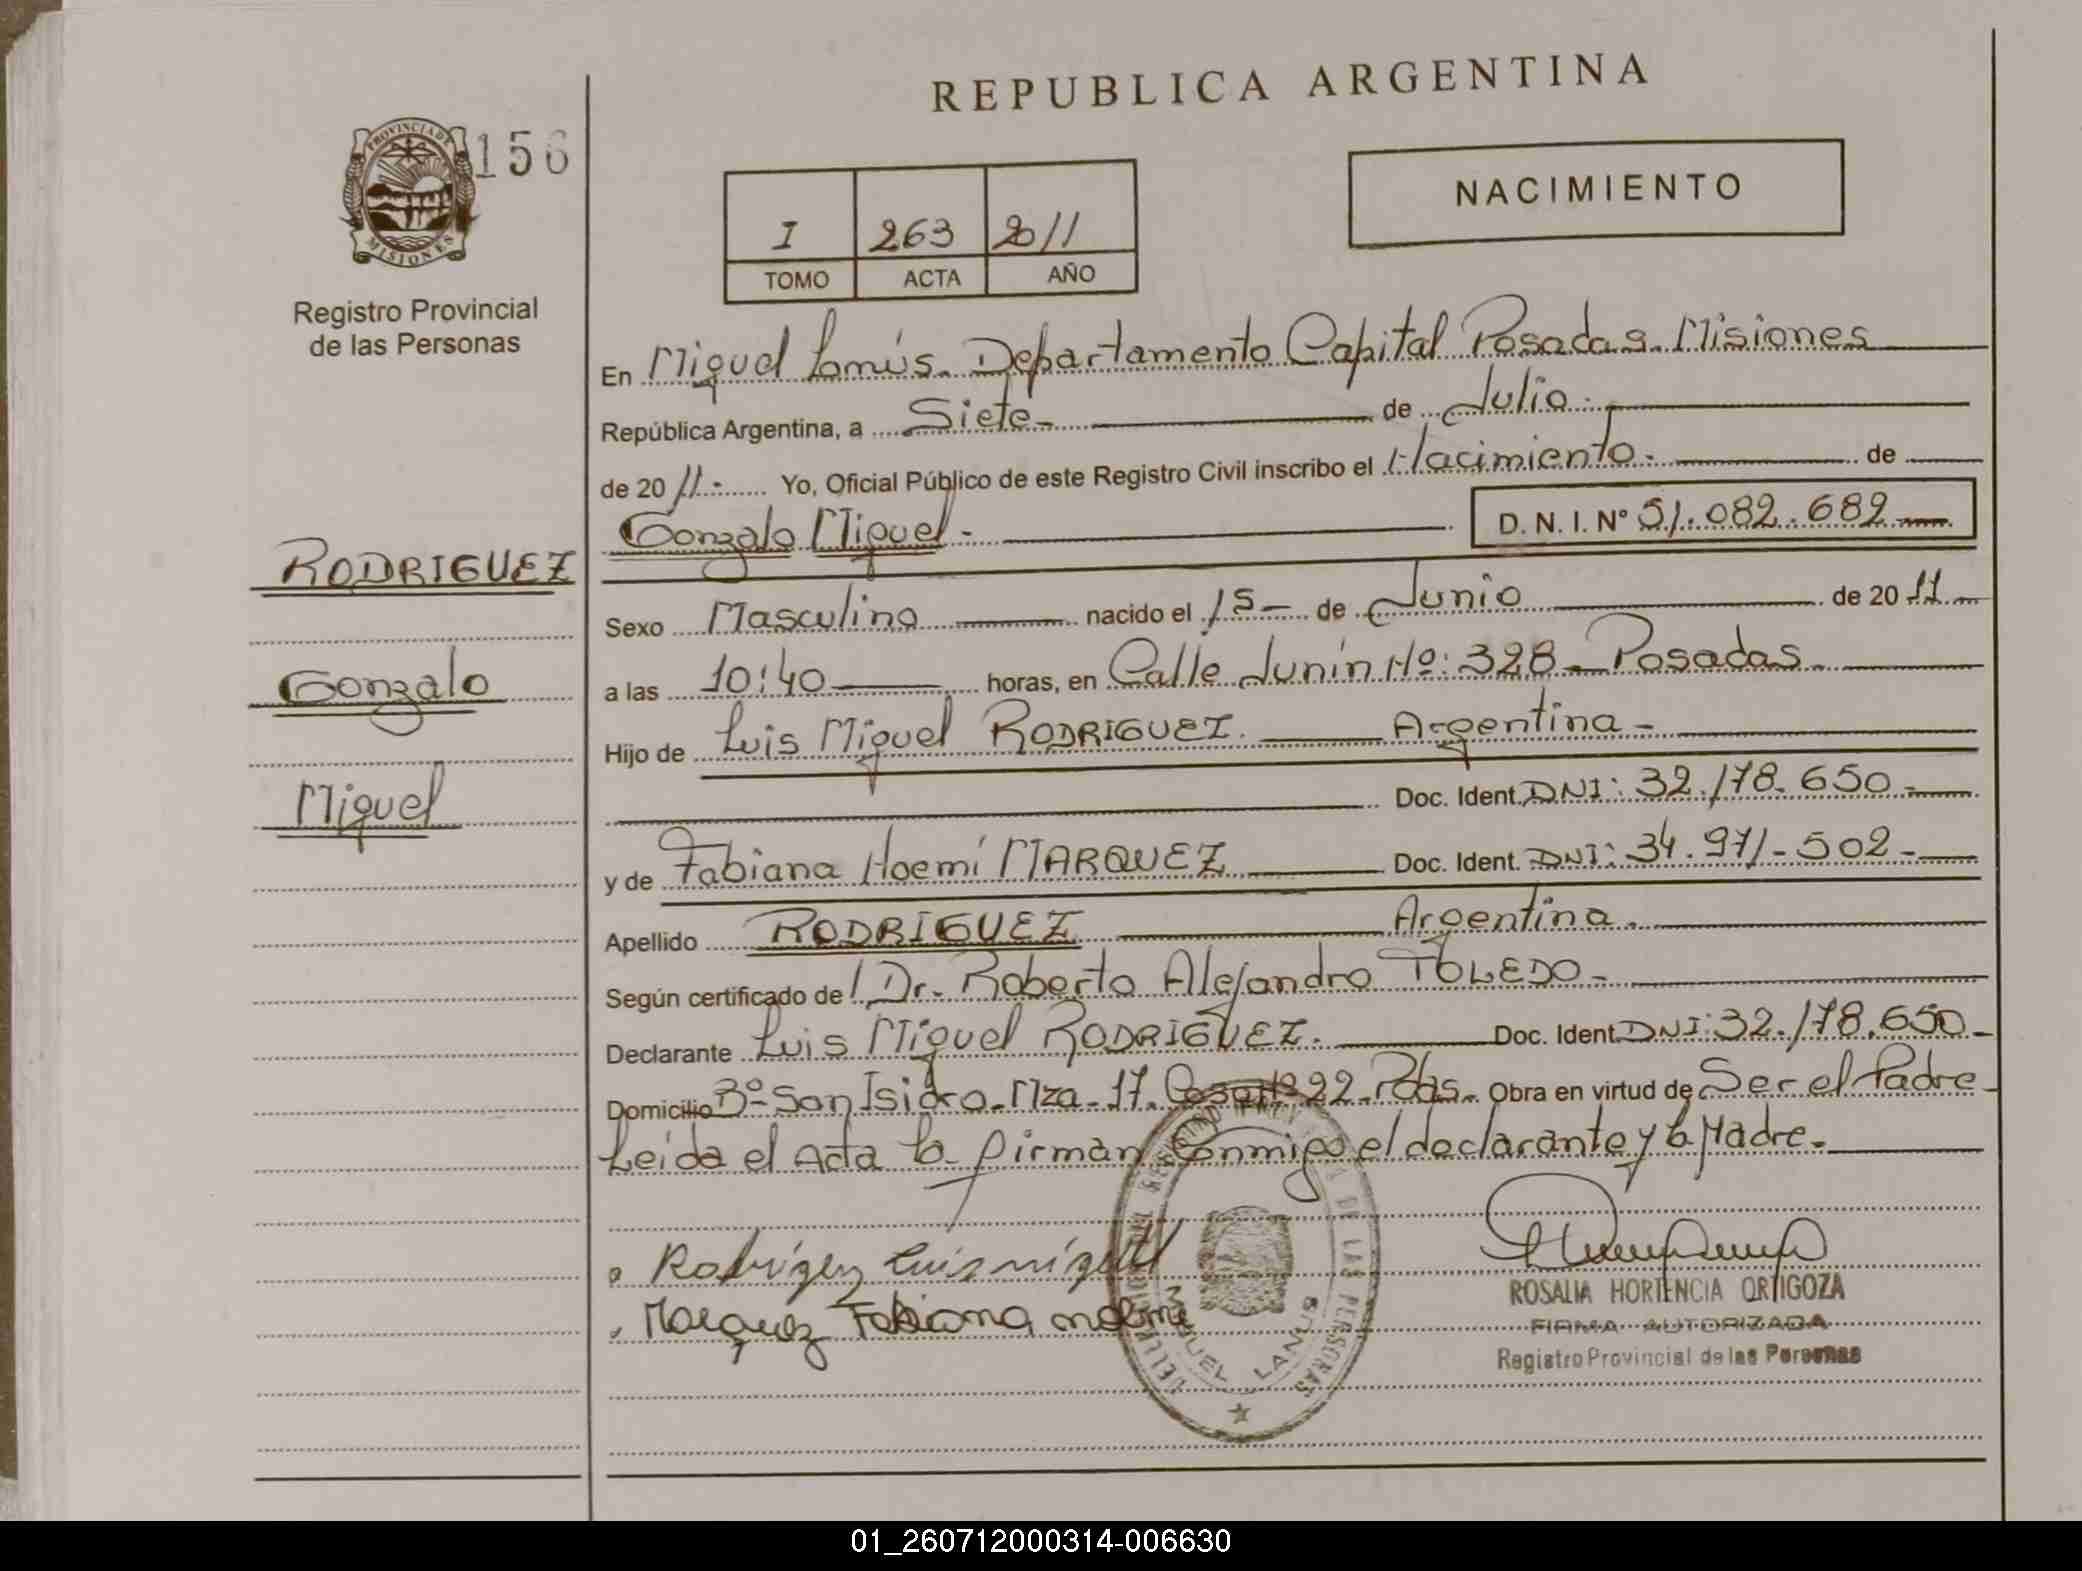 REPUBLICA ARGENTINA
PROVINCIA DE MISIONES
156
Registro Provincial
de las Personas
I 263 2011
TOMO ACTA AÑO
NACIMIENTO
En Miguel Lanús. Departamento Capital Posadas. Misiones
República Argentina, a Siete de Julio.
de 2011.- Yo, Oficial Público de este Registro Civil inscribo el Nacimiento.- de
Gonzalo Miguel.- D. N. I. Nº 51.082.682
RODRIGUEZ
Gonzalo
Miguel
Sexo Masculino nacido el 15- de Junio de 2011
a las 10:40 horas, en Calle Junín Nº: 328 - Posadas.
Hijo de Luis Miguel RODRIGUEZ. Argentina -
Doc. Ident. DNI: 32.178.650
y de Fabiana Noemí MARQUEZ Doc. Ident. DNI: 34.971.502
Apellido RODRIGUEZ Argentina.
Según certificado de Dr. Roberto Alejandro TOLEDO-
Declarante Luis Miguel RODRIGUEZ. Doc. Ident. DNI: 32.178.650-
Domicilio Bº San Isidro. Mza. 17. Casa Nº 22. Pdas. Obra en virtud de Ser el Padre
Leída el Acta la firman Conmigo el declarante y la Madre.
Rodrígez Luis migel
Marquez Fabiana noemi
MIGUEL LANUS
DE LAS PERSONAS
ROSALIA HORTENCIA ORTIGOZA
FIRMA AUTORIZADA
Registro Provincial de las Personas
01_260712000314-006630